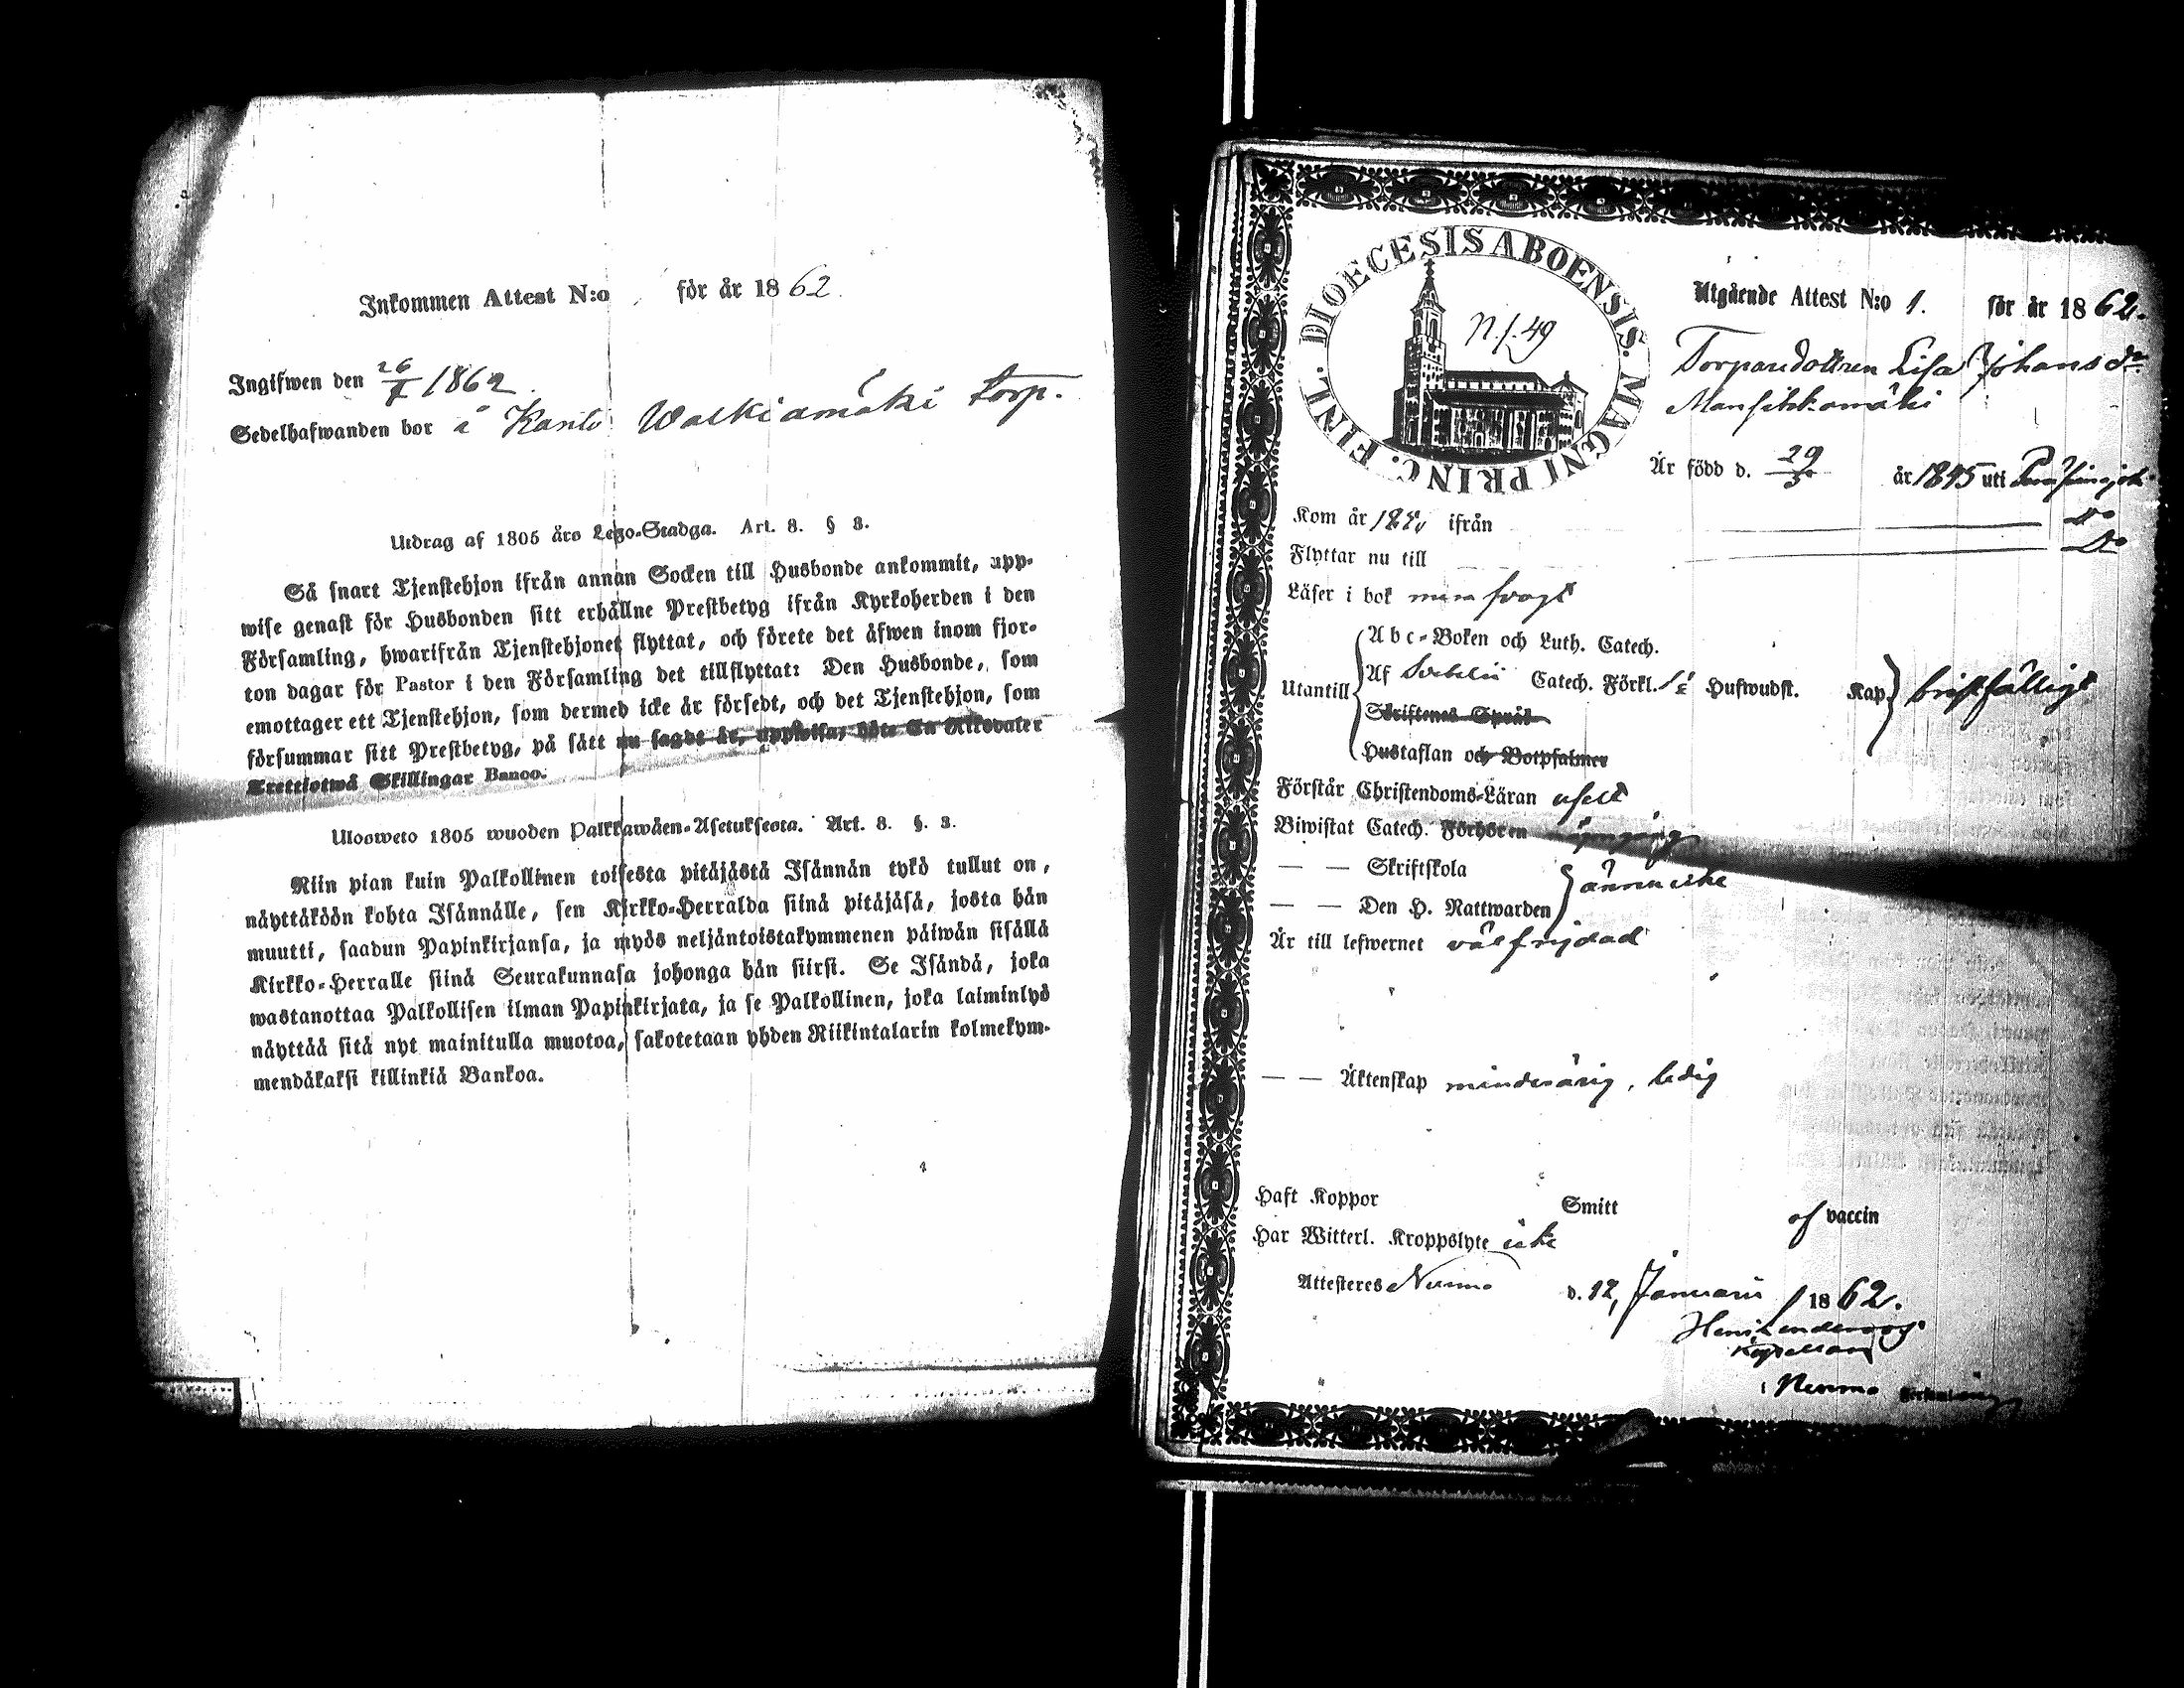 Inkommen Attest N:o för år 1862.
Ingifwen den 26/1 1862.
Sedelhafwanden bor i Kanto Walkiamäki torp.
Utdrag af 1805 års Lego-Stadga. Art. 8. § 3.
Så snart Tjenstehjon ifrån annan Socken till Husbonde ankommit, upp-
wise genast för Husbonden sitt erhållne Prestbetyg ifrån Kyrkoherden i den
Församling, hwarifrån Tjenstehjonet flyttat, och förete det äfwen inom fjor-
ton dagar för Pastor i den Församling det tillflyttat: Den Husbonde, som
emottager ett Tjenstehjon, som dermed icke är försedt, och det Tjenstehjon, som
försummar sitt Prestbetyg, på sätt nu sagdt är, uppwisa, böte En Riksdaler
Trettiotwå Skillingar Banco.
Ulosweto 1805 wuoden Palkkawäen-Asetuksesta. Art. 8. §. 3.
Niin pian kuin Palkollinen toisesta pitäjästä Isännän tykö tullut on,
näyttäköön kohta Isännälle, sen Kirkko-Herralda siinä pitäjäsä, josta hän
muutti, saadun Papinkirjansa, ja myös neljäntoistakymmenen päiwän sisällä
Kirkko-Herralle siinä Seurakunnasa johonga hän siirsi. Se Isändä, joka
wastanottaa Palkollisen ilman Papinkirjata, ja se Palkollinen, joka laiminlyö
näyttää sitä nyt mainitulla muotoa, sakotetaan yhden Riikintalarin kolmekym-
mendäkaksi killinkiä Bankoa.
DIOECESIS ABOENSIS. MAGNI PRINC. FINL.
N.f. 49
Utgående Attest N:o 1. för år 1862.
Torparedottren Lisa Johansdr
Mansikkamäki
Är född d. 29/5 år 1845 uti
Kom år ifrån Do
Flyttar nu till Do
Läser i bok svagt
Utantill
Abc-Boken och Luth. Catech.
Af Svebelii Catech. Förkl. Hufwudst. Kap bristfälligt
Skriftenes Språk
Hustaflan och Botpsalmer
Förstår Christendoms-Läran uselt
Biwistat Catech. Förhören
— — Skriftskola
ännu icke
— — Den H. Nattwarden
Är till lefwernet välfrejdad
— — Äktenskap minderårig, ledig
Haft Koppor Smitt af vaccin
Har Witterl. Kroppslyte icke
Attesteras Nummo d. 12, Januarii 1862.
Kapellan
i Nummo